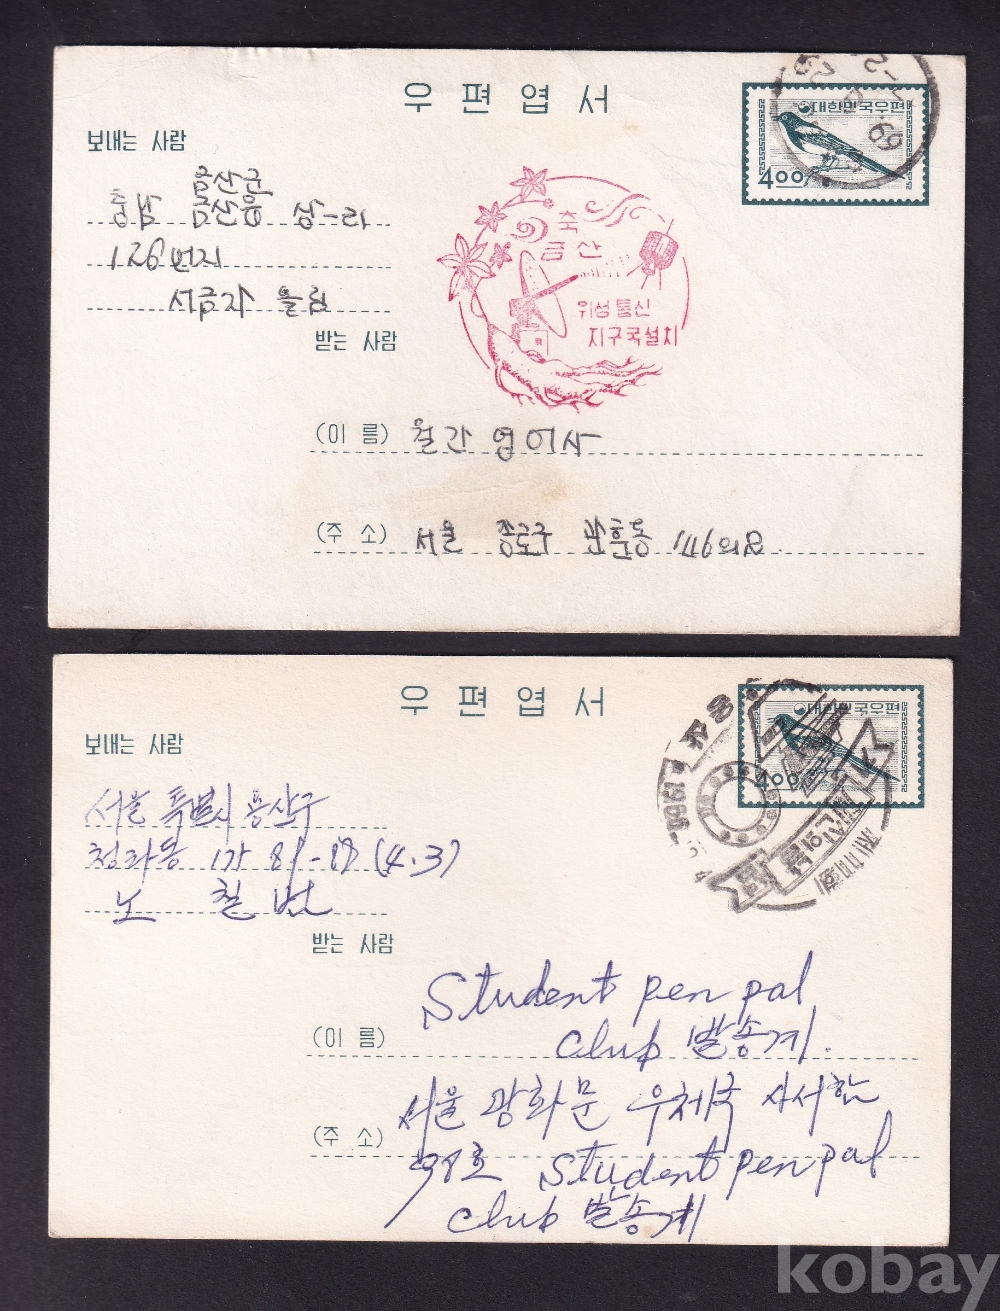 우편엽서
대한민국우편
400
69
보내는 사람
금산군
충남 금산읍 상-리
126번지
서금자 올림
축
금산
위성통신
지구국설치
받는 사람
(이 름) 월간 영어사
(주 소) 서울 종로구 관훈동 146의
우편엽서
대한민국우편
400
보내는 사람
서울 특별시 용산구
청파동 1가 81-17 (4.3)
노 철
받는 사람
(이 름)
Student pen pal
club 발송계.
(주 소)
서울 광화문 우체국 사서함
98호 Student pen pal
club 발송계
kobay